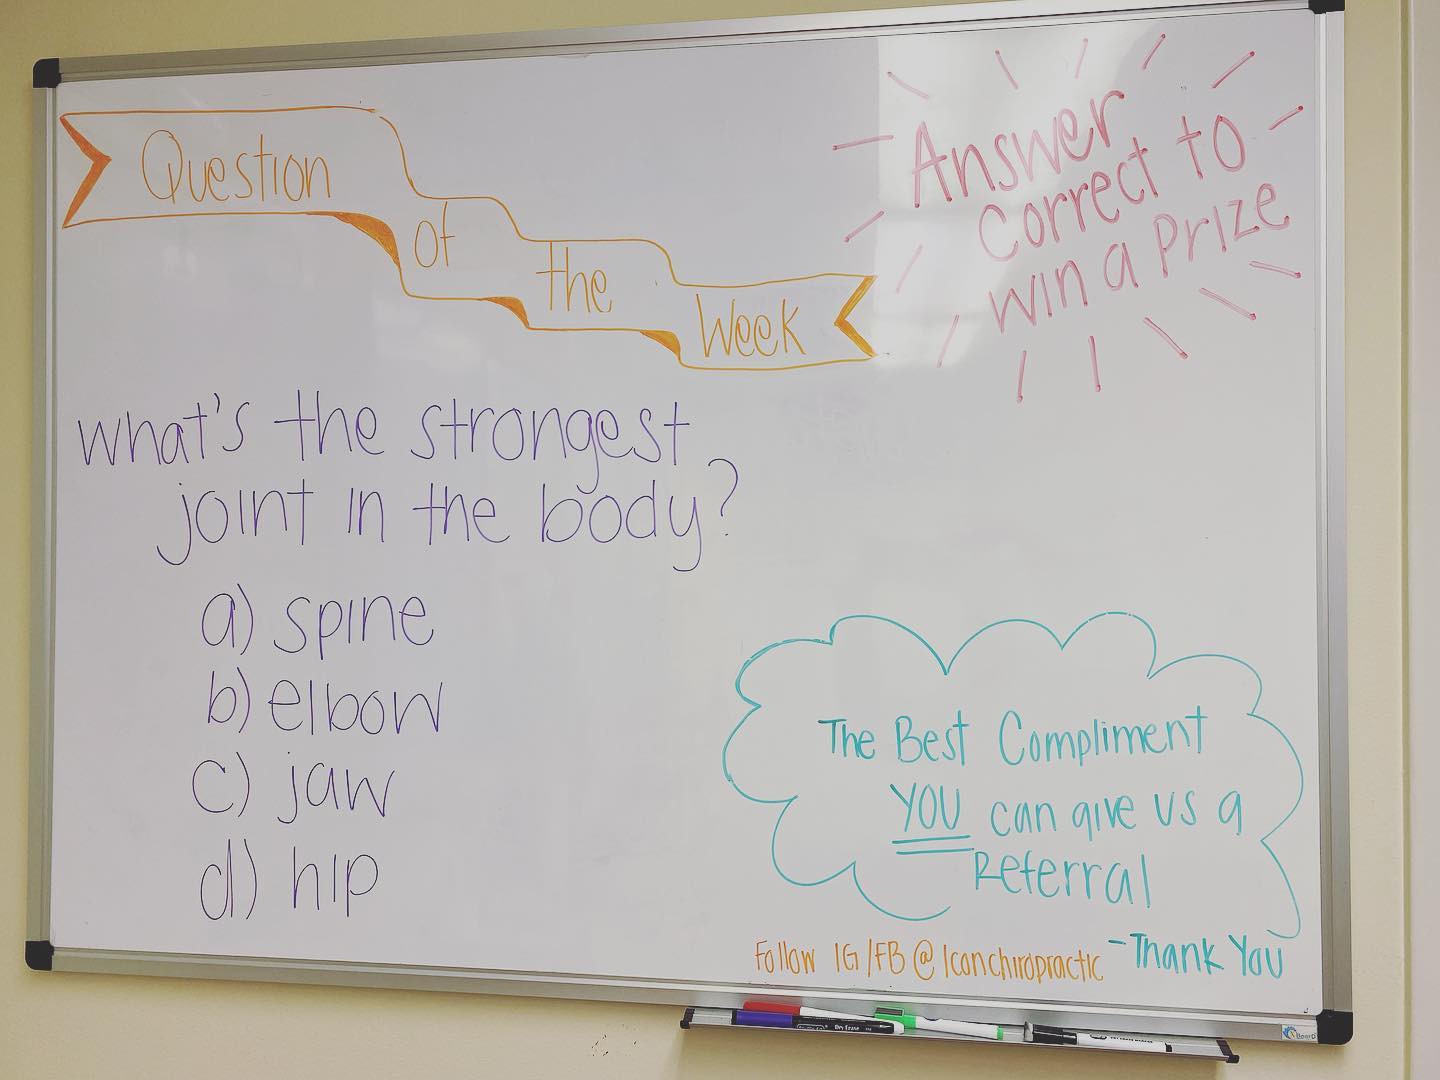 Question
of
the
Week
Answer
Correct to
win a Prize
What's the strongest
joint in the body?
a) spine
b) elbow
c) jaw
d) hip
The Best Compliment
YOU can give us a
Referral
-Thank You
Follow IG/FB @Iconchiropractic